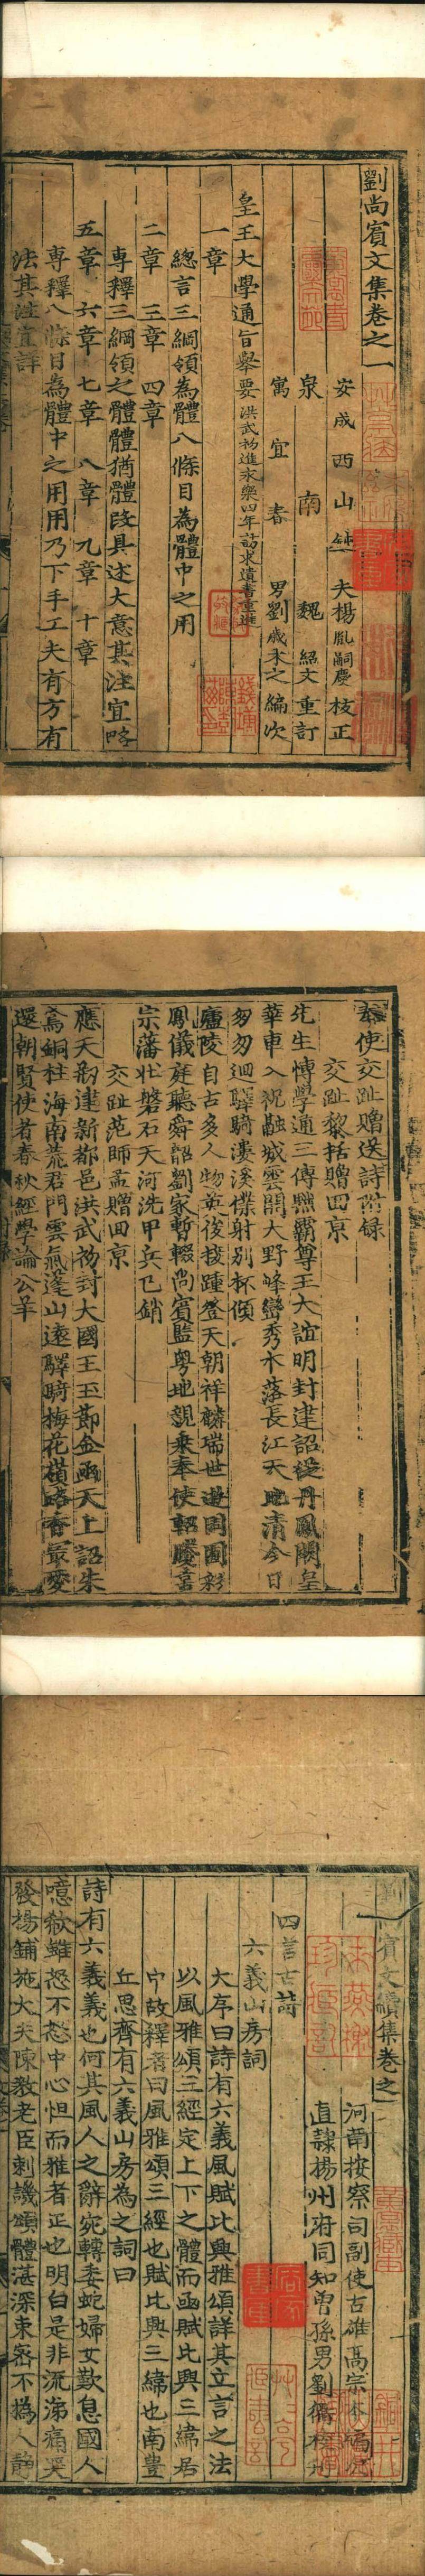 劉尚賓文集卷之一
安成西山純夫楊胤嗣慶校正
泉南魏紹文重訂
寓宜春男劉歲禾之編次
皇王大學通旨舉要洪武初進永樂四年訪求遺書重進
一章
總言三綱領為體八條目為體中之用
二章 三章 四章
專釋三綱領之體體猶體段具述大意其注宜略
五章 六章 七章 八章 九章 十章
專釋八條目為體中之用用乃下手工夫有方有
法其注宜詳
奉使交趾贈送詩附錄
交趾黎括贈回京
先生博學通三傳黜霸尊王大誼明封建詔從丹鳳闕皇
華車入祝融城雲開大野峰巒秀木落長江天地清今日
匆匆迴驛騎濃溪僕射別杯傾
廬陵自古多人物英俊接踵登天朝祥麟瑞世遊囿彩
鳳儀庭聽舜韶劉家暫輟尚賓監粵地親乘奉使軺慶喜
宗藩壯磐石天河洗甲兵已銷
交趾范師孟贈回京
應天初建新都邑洪武初封大國王玉節金函天上詔朱
鳶銅柱海南荒君門雲氣蓬山遠驛騎梅花橫路香最愛
還朝賢使者春秋經學論公羊
賓文續集卷之
河南按察司副使古雄高宗本
直隸揚州府同知曾孫男劉
四言古詩
六義山房詞
大序曰詩有六義風賦比興雅頌詳其立言之法
以風雅頌三經定上下之體而函賦比興三緯居
中故釋者曰風雅頌三經也賦比興三緯也南豊
丘思齊有六義山房為之詞曰
詩有六義義也何其風人之辭宛轉委蛇婦女歎息國人
噫欷雖怨不怒中心怛而雅者正也明白是非流涕痛哭
發揚鋪施大夫陳教老臣刺譏頌體湛深束密不撝人靜